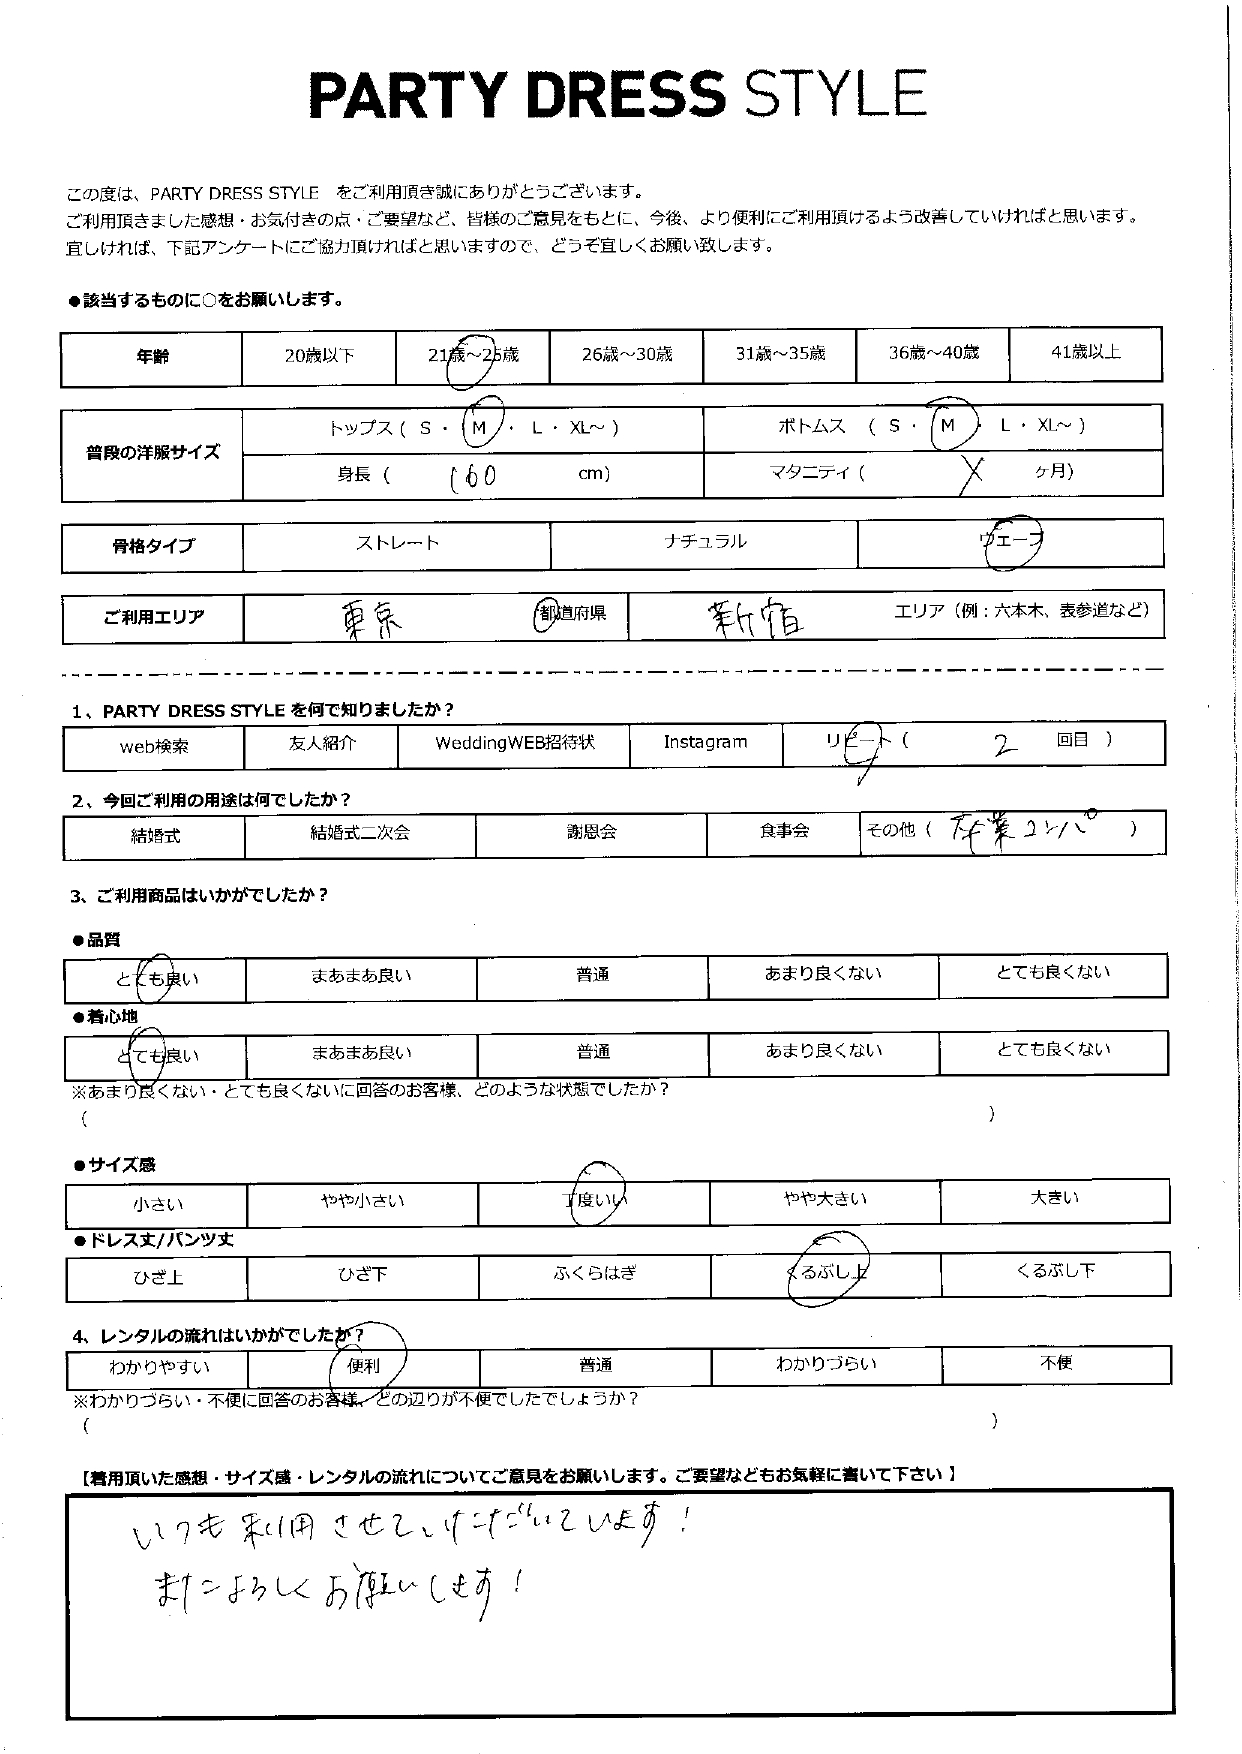 PARTY DRESS STYLE
この度は、PARTY DRESS STYLE をご利用頂き誠にありがとうございます。
ご利用頂きました感想・お気付きの点・ご要望など、皆様のご意見をもとに、今後、より便利にご利用頂けるよう改善していければと思います。
宜しければ、下記アンケートにご協力頂ければと思いますので、どうぞ宜しくお願い致します。
●該当するものに○をお願いします。
年齢 20歳以下 21歳～25歳 26歳～30歳 31歳～35歳 36歳～40歳 41歳以上
普段の洋服サイズ トップス ( S ・ M ・ L ・ XL～ ) ボトムス ( S ・ M ・ L ・ XL～ )
身長 ( 160 cm) マタニティ ( X ヶ月)
骨格タイプ ストレート ナチュラル ウェーブ
ご利用エリア 東京 都道府県 新宿 エリア（例：六本木、表参道など）
1、PARTY DRESS STYLE を何で知りましたか？
web検索 友人紹介 WeddingWEB招待状 Instagram リピート ( 2 回目 )
2、今回ご利用の用途は何でしたか？
結婚式 結婚式二次会 謝恩会 食事会 その他 ( 卒業コンパ )
3、ご利用商品はいかがでしたか？
●品質
とても良い まあまあ良い 普通 あまり良くない とても良くない
●着心地
とても良い まあまあ良い 普通 あまり良くない とても良くない
※あまり良くない・とても良くないに回答のお客様、どのような状態でしたか？
( )
●サイズ感
小さい やや小さい 丁度いい やや大きい 大きい
●ドレス丈/パンツ丈
ひざ上 ひざ下 ふくらはぎ くるぶし上 くるぶし下
4、レンタルの流れはいかがでしたか？
わかりやすい 便利 普通 わかりづらい 不便
※わかりづらい・不便に回答のお客様、どの辺りが不便でしたでしょうか？
( )
【着用頂いた感想・サイズ感・レンタルの流れについてご意見をお願いします。ご要望などもお気軽に書いて下さい 】
いつも利用させていただいています！
またよろしくお願いします！